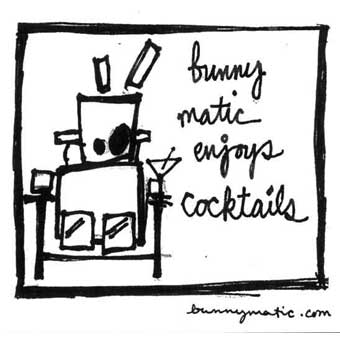 bunny
matic
enjoys
cocktails
bunnymatic.com